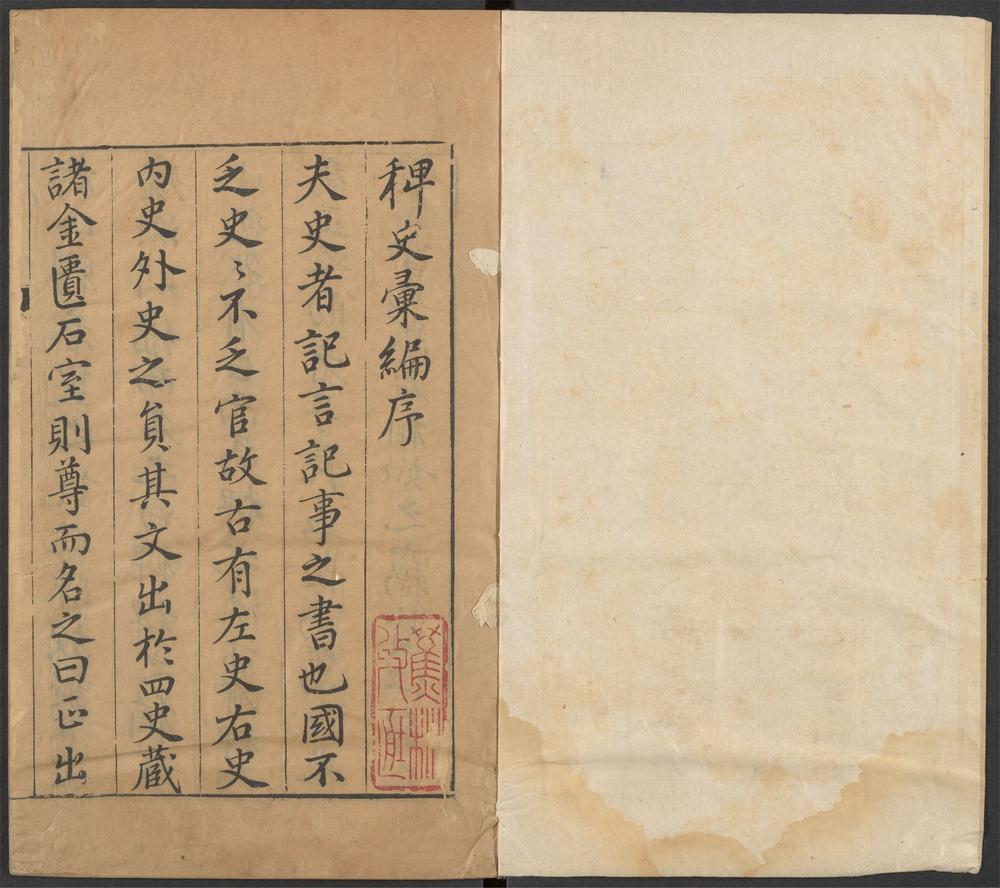 稗史彙編序
夫史者記言記事之書也國不
乏史〻不乏官故古有左史右史
內史外史之員其文出於四史藏
諸金匱石室則尊而名之曰正出